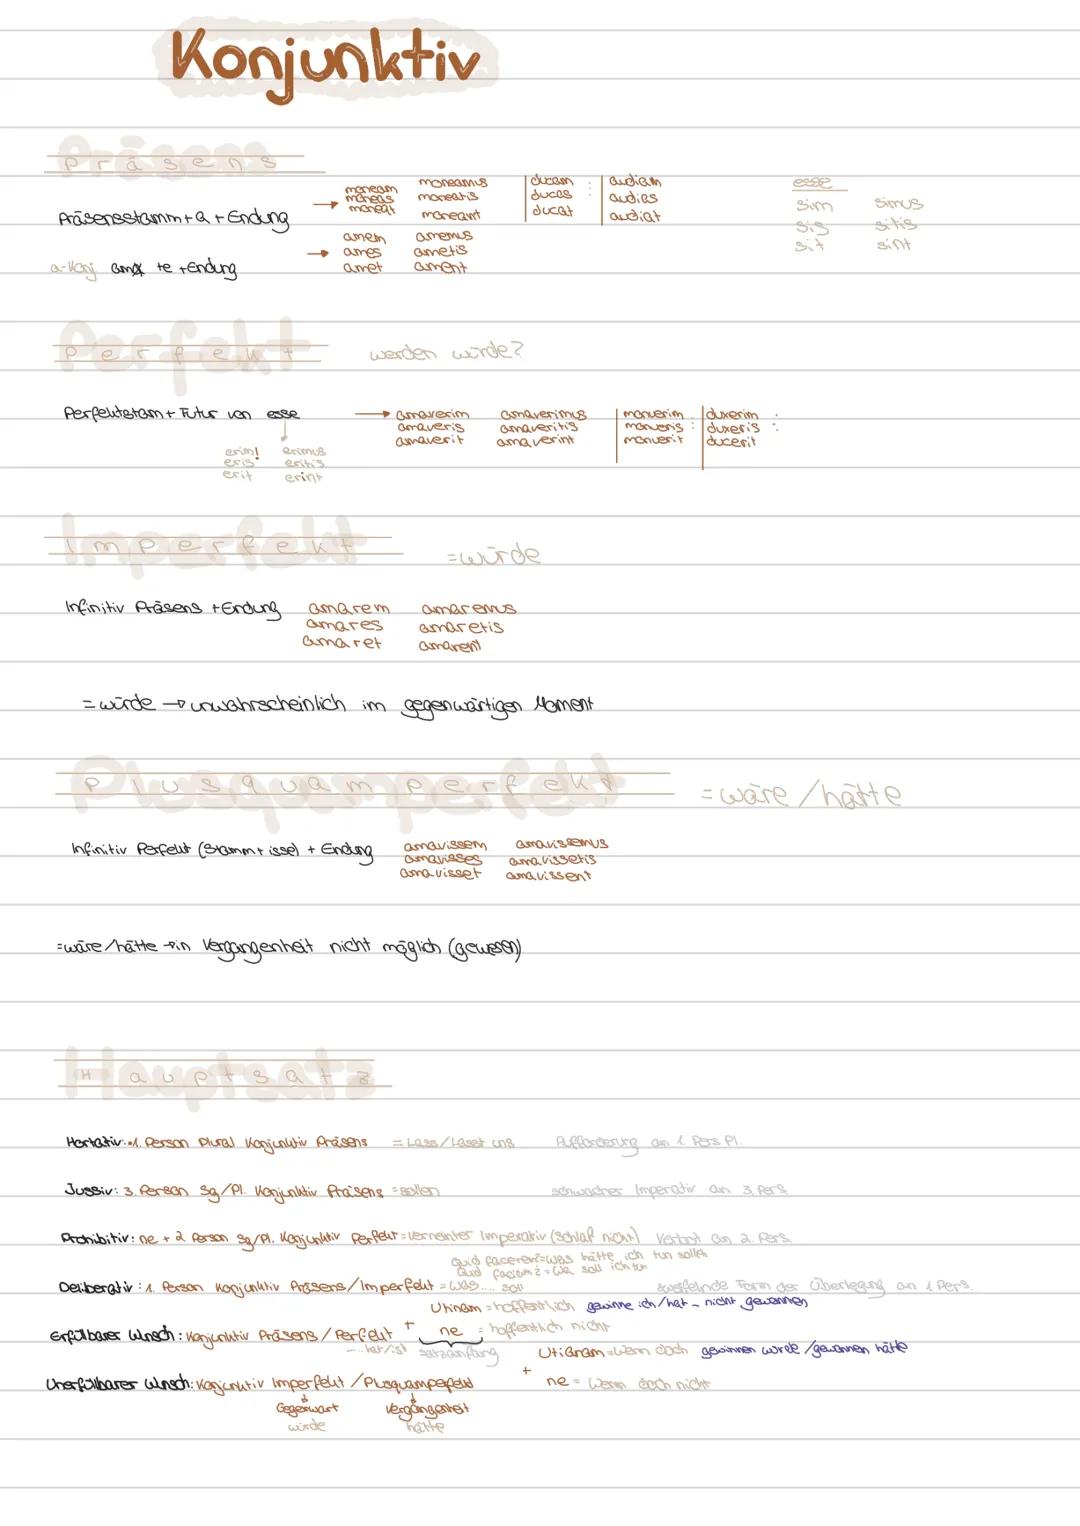 Konjunktiv
Präsens
Präsensstamm + a + Endung
moneam moneamus
moneas moneatis
moneat moneant
ducam : audiam
ducas : audias
ducat audiat
esse
sim simus
sis sitis
sit sint
a-Konj. ama te + Endung
amem amemus
ames ametis
amet ament
Perfekt werden würde?
Perfektstam + Futur von esse
erim! erimus
eris eritis
erit erint
amaverim amaverimus
amaveris amaveritis
amaverit amaverint
monuerim duxerim :
monueris : duxeris :
monuerit ducerit
Imperfekt =würde
Infinitiv Präsens + Endung
amarem amaremus
amares amaretis
amaret amarent
= würde → unwahrscheinlich im gegenwärtigen Moment
Plusquamperfekt = wäre/hätte
Infinitiv Perfekt (Stamm + isse) + Endung
amavissem amavissemus
amavisses amavissetis
amavisset amavissent
=wäre/hätte → in Vergangenheit nicht möglich (gewesen)
Hauptsatz
Hortativ: •1. Person Plural Konjunktiv Präsens = Lass/Lasst uns Aufforderung an 1 Pers Pl.
Jussiv: 3. Person Sg/Pl. Konjunktiv Präsens = sollen schwacher Imperativ an 3. Pers
Prohibitiv: ne + 2 Person Sg/Pl. Konjunktiv Perfekt = verneinter Imperativ (schlaf nicht) Verbot an 2. Pers.
Quid facerem? = was hätte ich tun sollen
Quid faciam? = was soll ich tun
Deliberativ: 1. Person Konjunktiv Präsens/Imperfekt = was.... soll zweifelnde Form der Überlegung an 1 Pers.
Utinam = hoffentlich gewinne ich/hat - nicht gewonnen
Erfüllbarer Wunsch: Konjunktiv Präsens / Perfekt + ne = hoffentlich nicht
-... hat/ist satzanfang
Utinam = wenn doch gewinnen würde /gewonnen hätte
Unerfüllbarer Wunsch: Konjunktiv Imperfekt / Plusquamperfekt + ne = wenn doch nicht
Gegenwart Vergangenheit
würde hätte